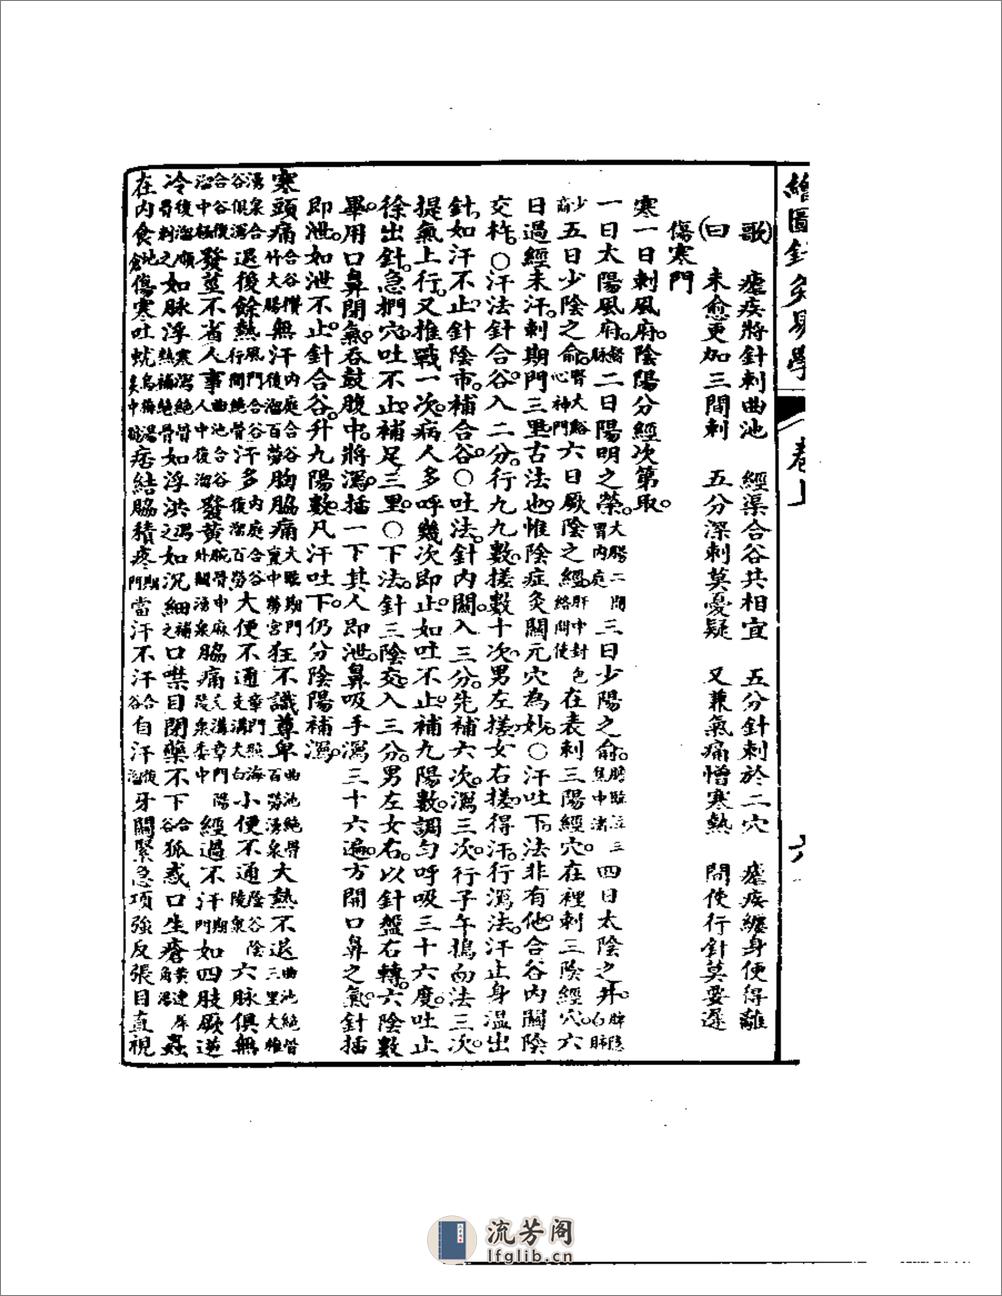 繪圖針灸易學 卷上 六
歌 瘧疾將針刺曲池 經渠合谷共相宜 五分針刺於二穴 瘧疾纏身便得離
曰 未愈更加三間刺 五分深刺莫憂疑 又兼氣痛憎寒熱 間使行針莫要遲
傷寒門
寒一日刺風府。陰陽分經次第取。
一日太陽風府。督脉二日陽明之榮。大腸二間胃內庭三日少陽之俞。膽臨泣三焦中渚四日太陰之井。脾隱白肺
少商五日少陰之俞。腎大谿心神門六日厥陰之經。肝中封包絡間使在表刺三陽經穴。在裡刺三陰經穴。六
日過經未汗。刺期門三里古法也。惟陰症灸關元穴為妙。○汗吐下法非有他。合谷內關陰
交杵。○汗法針合谷。入二分。行九九數搓數十次。男左搓。女右搓。得汗。行瀉法。汗止身溫出
針。如汗不止。針陰市。補合谷○吐法。針內關。入三分。先補六次。瀉三次。行子午搗臼法三次。
提氣上行。又推戰一次。病人多呼幾次即止。如吐不止。補九陽數。調勻呼吸三十六度。吐止
徐出針。急捫穴。吐不止。補足三里。○下法。針三陰交。入三分。男左女右。以針盤右轉。六陰數
畢。用口鼻閉氣。吞鼓腹中。將瀉。插一下其人即泄。鼻吸手瀉三十六遍。方開口鼻之氣。針插
即泄。如泄不止。針合谷。升九陽數。凡汗吐下。仍分陰陽補瀉。
寒頭痛合谷攢竹大腸無汗內庭合谷復溜百勞胸脇痛大陵期門亶中勞宮狂不識尊卑曲池絕骨百勞湧泉大熱不退曲池絕骨三里大椎
湧泉合谷俱瀉退後餘熱風門合谷行間絕骨汗多內庭合谷復溜百勞大便不通章門照海支溝大白小便不通陰谷陰陵泉六脉俱無
合谷復溜中極發莖不省人事曲池合谷人中復溜發黃腕骨中脘外關湧泉脇痛支溝章門陽陵泉委中經過不汗期門如四肢厥逆
冷復溜順骨刺之如脉浮寒瀉絕骨熱補絕骨如浮洪瀉之如沉細補之口噤目閉藥不下合谷狐惑口生瘡黃連犀角湯蟲
在內食地倉傷寒吐蛔烏梅湯中脘痞結脇積疼期門當汗不汗合谷自汗復溜牙關緊急項強反張目直視
流芳阁
lfglib.cn